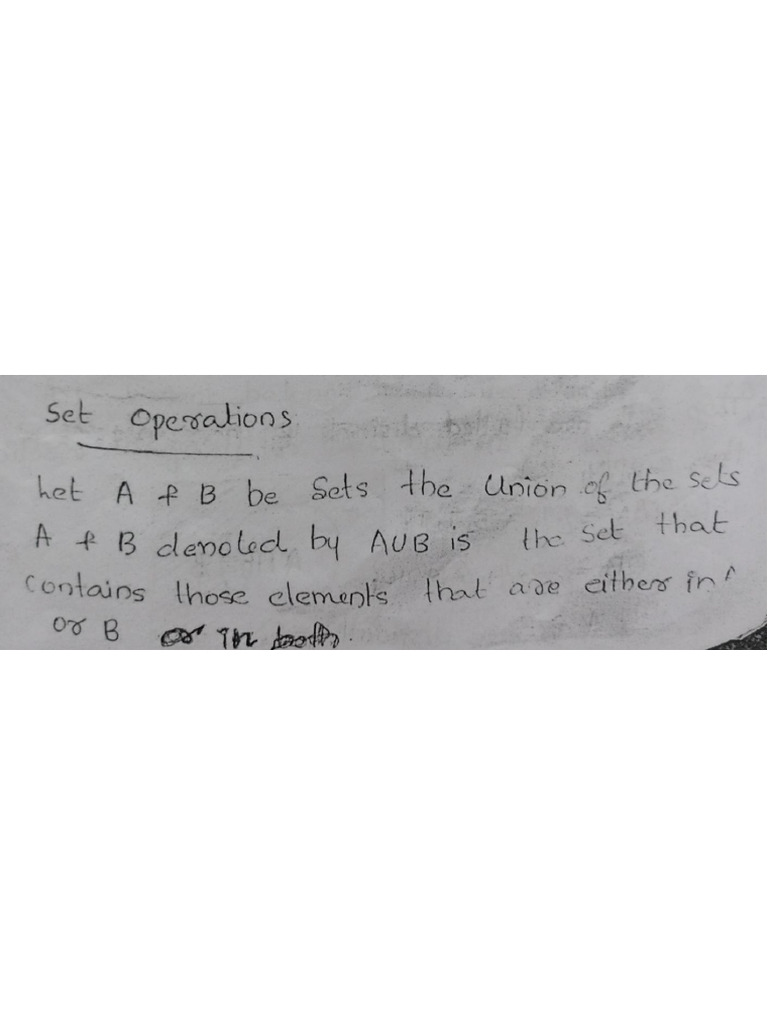 Set Operations
Let A & B be Sets the Union of the sets
A & B denoted by A∪B is the set that
Contains those elements that are either in A
or B or in both.